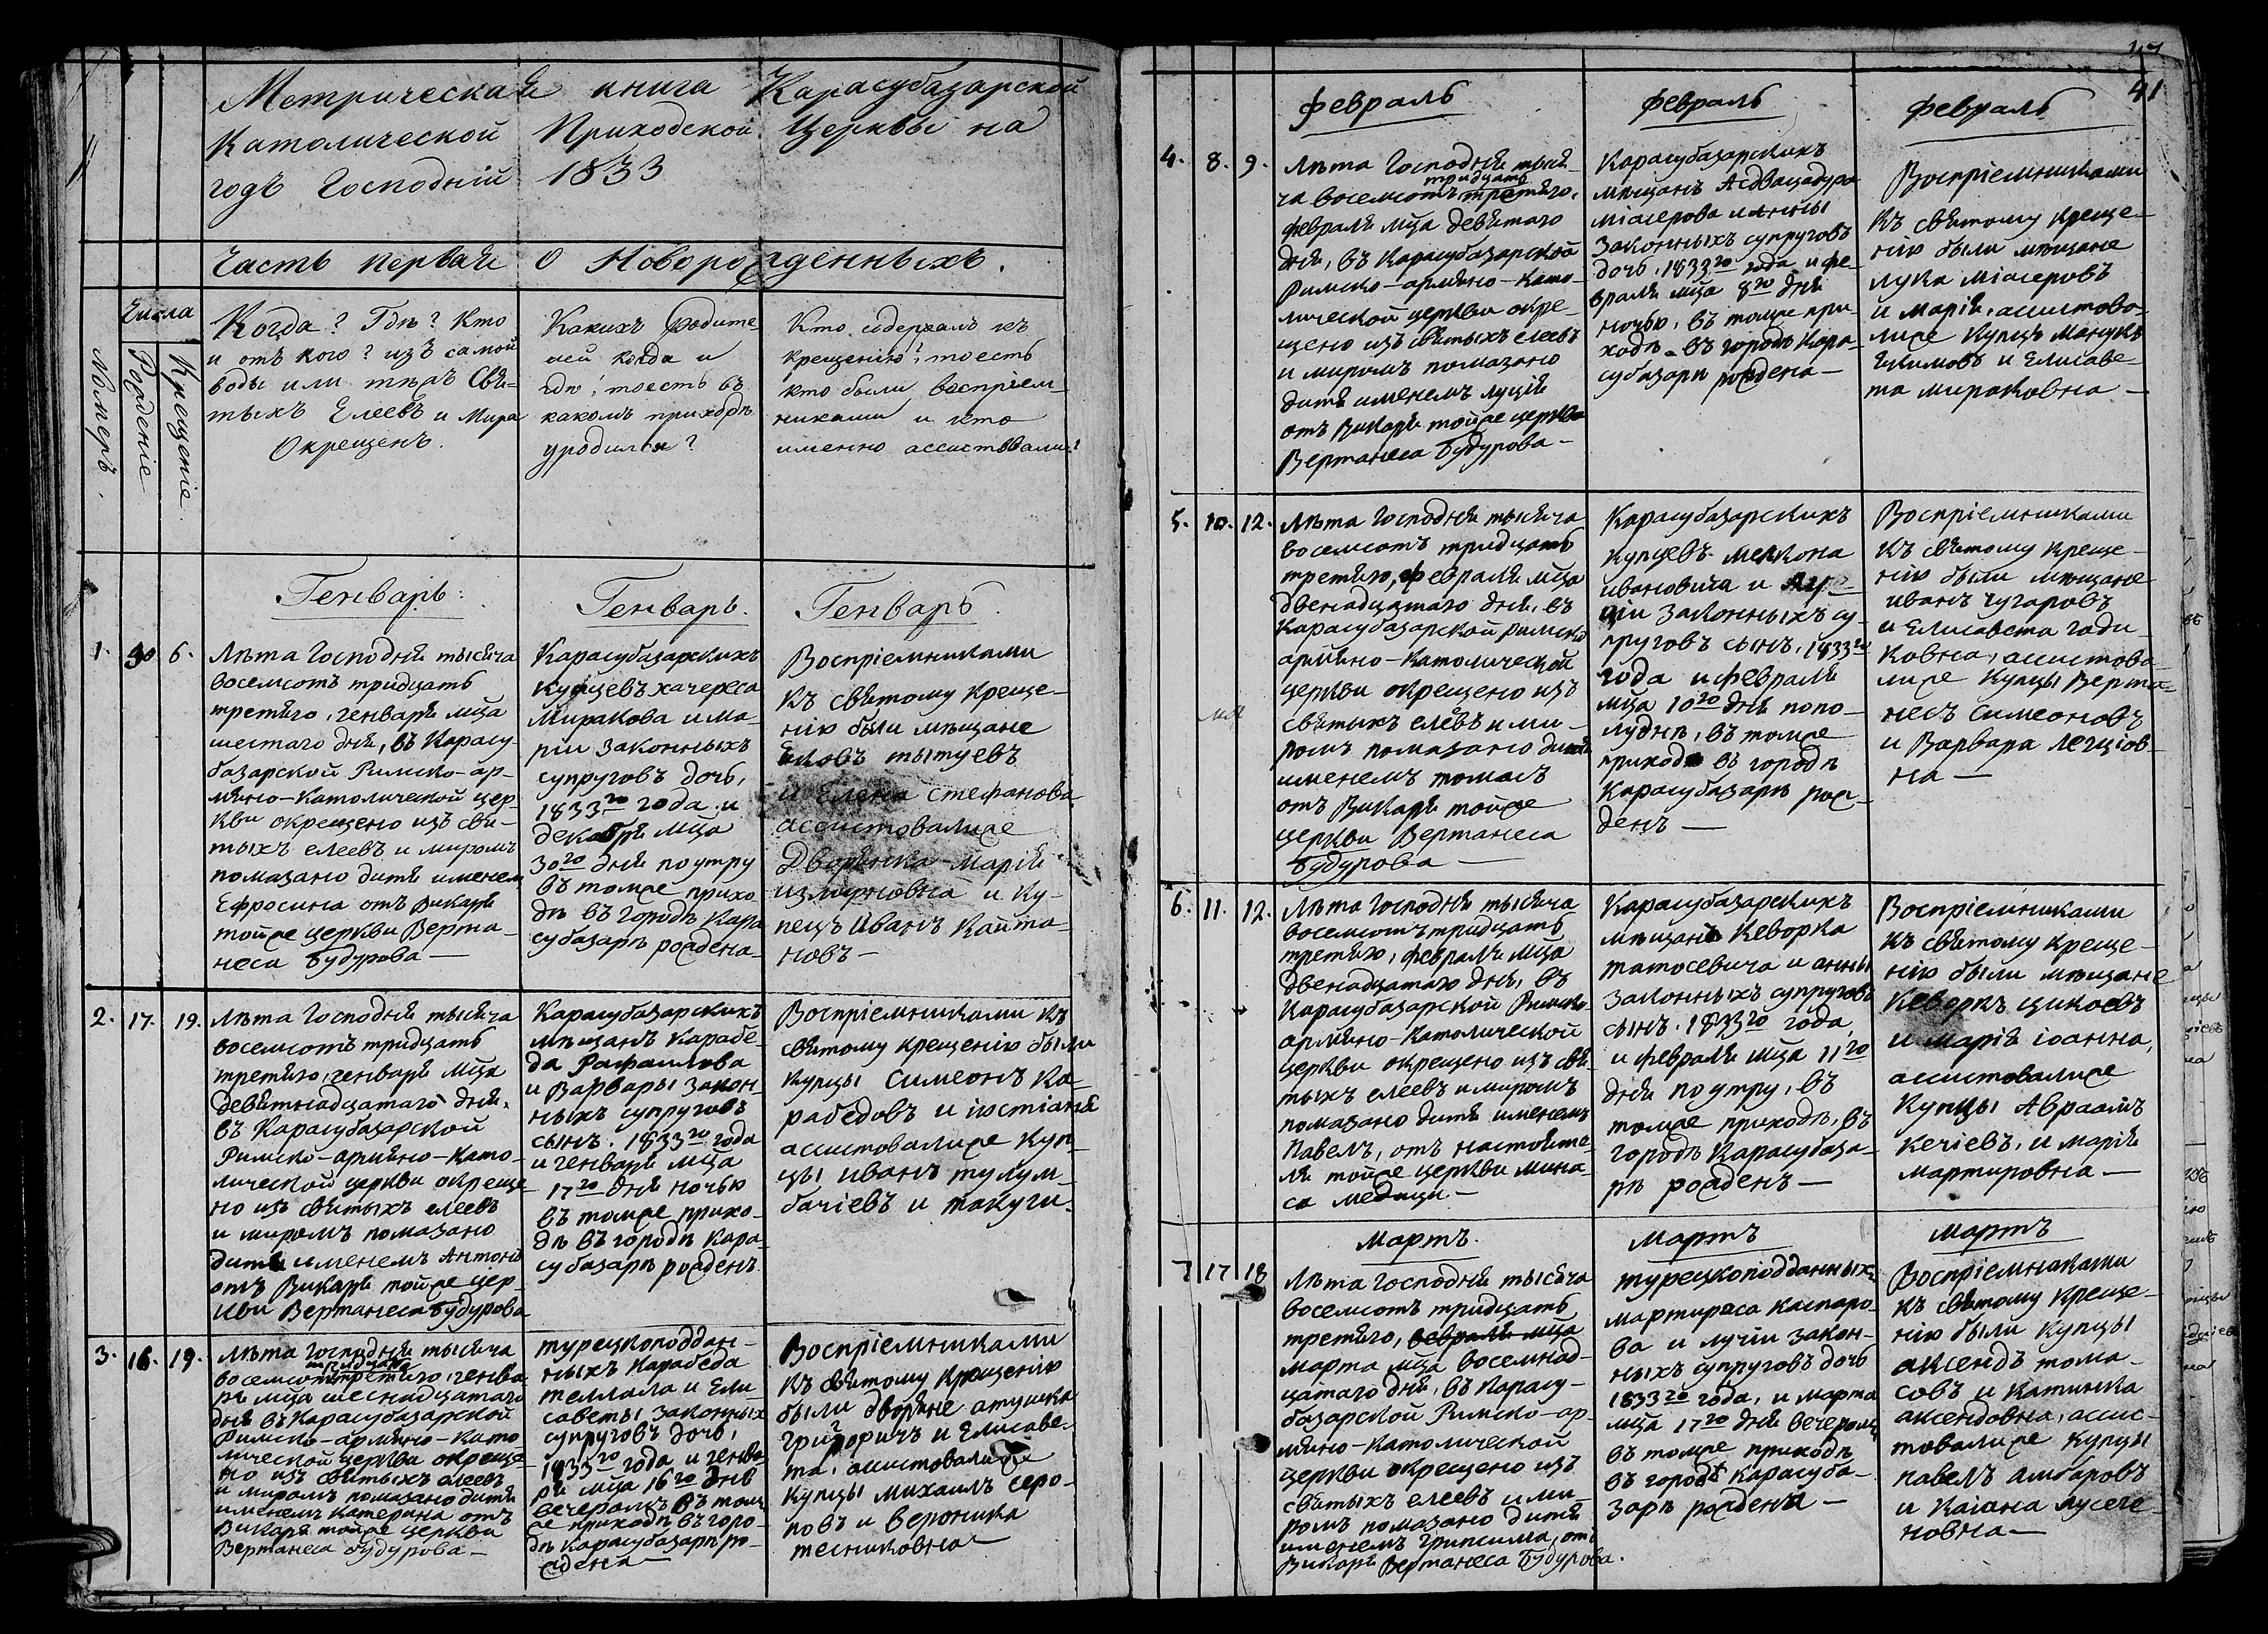 Метрическая книга Карасубазарской
Католической Приходской Церквы на
годъ Господній 1833
Часть первая О Новорожденныхъ.
Числа
Номеръ.
Рожденіе
Крещеніе.
Когда? Гдѣ? Кто
и отъ кого? изъ самой
воды или тѣхъ Свя-
тыхъ Елеевъ и Мира
Окрещенъ.
Какихъ Родите
лей когда и
гдѣ, тоесть въ
какомъ приходѣ
уродился?
Кто содержалъ къ
крещенію? тоесть
кто были воспріем-
никами и кто
именно ассиствовали?
Генварь.
Генварь.
Генварь.
1. 30 6.
Лѣта Господня тысяча
восемсотъ тридцать
третяго, генваря мца
шестаго дня, въ Карасу-
базарской Римско-ар-
мяно-Католической цер-
кви окрещено изъ свя-
тыхъ елеевъ и миромъ
помазано дитя именем
Ефросина отъ Викаря
тойже церкви Верта-
неса Будурова —
Карасубазарскихъ
купцевъ хачереса
Миракова и ма-
ріи законныхъ
супруговъ дочь,
1833го года и
декабря мца
30го дня поутру
въ томже прихо
дѣ въ городѣ Кара
субазарѣ рождена
Воспріемниками
къ святому креще-
нію были мѣщане
Яковъ тытуевъ
и Елена Стефанова
ассистовалиже
Дворянка Марія
измировна и Ку-
пецъ Иванъ Кайта-
новъ —
2. 17. 19.
Лѣта Господня тысяча
восемсотъ тридцать
третяго, генваря мца
девятнадцатаго дня,
въ Карасубазарской
Римско-армяно-Като-
лической церкви окреще
но изъ святыхъ елеевъ
и миромъ помазано
дитя именемъ Антонъ
отъ Викаря тойже цер-
кви Вертанеса Будурова
Карасубазарскихъ
мѣщанъ Карабе-
да Рафаилова
и Варвары закон-
ныхъ супруговъ
сынъ. 1833го года
и генваря мца
17го дня ночью
въ томже прихо-
дѣ въ городѣ Кара-
субазарѣ рожденъ.
Воспріемниками къ
святому крещенію были
купцы Симеонъ Ка-
рабедовъ и іюстіанія
ассистовалиже Куп-
цы иванъ тулум-
бачіевъ и такуги.
3. 16. 19.
Лѣта Господня тысяча
тридцать
восемсотъ третяго, генва
рѣ мца шеснадцатаго
дня въ Карасубазарской
Римско-армяно-Като
лической церкви окреще-
но изъ святыхъ елеевъ
и миромъ помазано дитя
именемъ Катерина отъ
Викаря тойже церкви
Вертанеса будурова —
турецкоподдан-
ныхъ Карабеда
теллала и Ели
саветы законных
супруговъ дочь,
1833го года и генва-
ря мца 16го дня
вечеромъ въ том
же приходѣ въ горо-
дѣ Карасубазарѣ ро-
ждена —
Воспріемниками
къ святому Крещенію
были дворяне атушка
Григоричъ и Елисаве-
та, ассистовалиже
Купцы Михаилъ серо-
повъ и вероника
тесниковна —
41
Февраль
Февраль
Февраль
4. 8. 9.
Лѣта Господня тыся-
тридцать
ча восемсотъ третяго,
февраля мца девятаго
дня, въ Карасубазарской
Римско-армяно-Като-
лической церкви окре-
щено изъ святыхъ елеевъ
и миромъ помазано
дитя именемъ луція
отъ Викаря тойже церкви
Вертанеса Будурова —
Карасубазарскихъ
мѣщанъ Асдвацадура
міасерова и Анны
законныхъ супруговъ
дочь, 1833го года и фе-
враля мца 8го дня
ночью, въ томже при-
ходѣ въ городѣ Кара-
субазарѣ рождена —
Воспріемниками
къ святому Креще-
нію были мѣщане
лука міасеровъ
и марія, ассистова-
лиже Купцъ манукъ
Якимовъ и Елисаве-
та мираковна —
5. 10. 12.
Лѣта Господня тысяча
восемсотъ тридцать
третяго, февраля мца
двенадцатаго дня, въ
Карасубазарской римско
армяно-Католической
церкви окрещено изъ
святыхъ елеевъ и ми-
ромъ помазано дитя
именемъ томасъ
отъ Викаря тойже
церкви Вертанеса
Будурова —
Карасубазарскихъ
купцевъ мелкона
ивановича и
законныхъ су-
пруговъ сынъ, 1833го
года и февраля
мца 10го дня попо-
луднѣ, въ томже
приходѣ въ городѣ
Карасубазарѣ рож-
денъ —
Воспріемниками
къ святому креще-
нію были мѣщане
иванъ чугаровъ
и Елисавета гади-
ковна, ассистова-
лиже Купцы Верта-
несъ симеоновъ
и Варвара легціов-
на —
6. 11. 12.
Лѣта Господня тысяча
восемсотъ тридцать
третяго, февралѣ мца
двенадцатаго дня, въ
Карасубазарской Римско-
армяно-Католической
церкви окрещено изъ свя
тыхъ елеевъ и миромъ
помазано дитя именемъ
Павелъ, отъ настояте-
ля тойже церкви мина-
са медици —
Карасубазарскихъ
мѣщанъ Кеворка
татосевича и анны
законныхъ супруговъ
сынъ. 1833го года,
и февраля мца 11го
дня поутру, въ
томже приходѣ, въ
городѣ Карасубаза-
рѣ рожденъ —
Воспріемниками
къ святому креще-
нію были мѣщане
Кеворкъ цикоевъ
и марія іоанна,
ассистовалиже
Купцы Авраамъ
кечіевъ, и марія
мартировна —
Мартъ.
Мартъ
Мартъ
7 17 18
Лѣта Господня тысяча
восемсотъ тридцать
третяго, февраля мца
марта мца восемнад-
цатаго дня, въ Карасу-
базарской Римско-ар-
мяно-Католической
церкви окрещено изъ
святыхъ елеевъ и ми-
ромъ помазано дитя
именемъ Грипсима, отъ
Викаря Вертанеса Будурова.
турецкоподданныхъ
мартироса каспаро-
ва и лучіи закон-
ныхъ супруговъ дочь
1833го года, и марта
мца 17го дня вечером
въ томже приходѣ
въ городѣ Карасуба-
зарѣ рождена —
Воспріемниками
къ святому Креще-
нію были Купцы
аксендъ тома-
совъ и Катинка
аксендовна, ассис-
товалиже Купцы
павелъ амбаровъ
и Каиана лусеге-
новна —